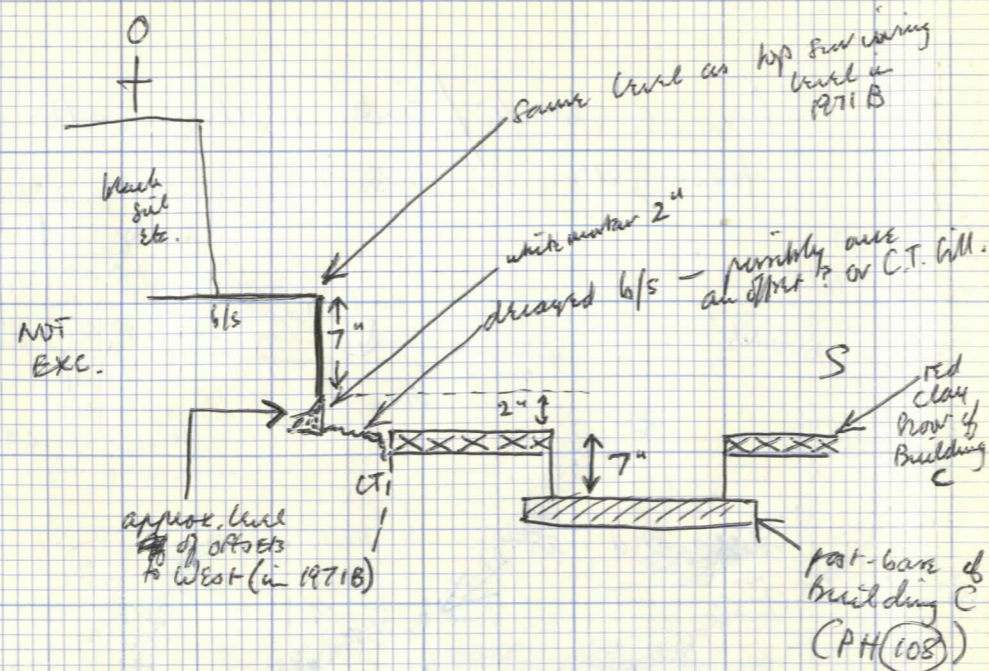 Same level as top surviving
level in
1971 B
black
soil
etc.
white mortar 2"
decayed b/s – possibly once
an offset? or C.T. fill.
b/s
7"
NOT
EXC.
S
red
clay
floor of
Building
C
2"
7"
CT1
approx. level
of offsets
to West (in 1971B)
post-base of
Building C
(PH 108)